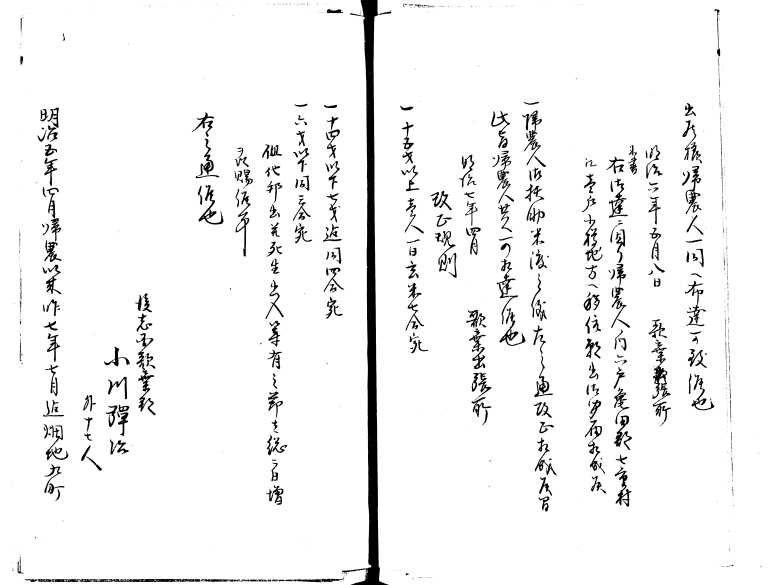 出府様帰農人一同へ布達可致候也
明治六年五月八日 歌棄出張所
右御達ニ因り帰農人ノ内六戸亀田郡七重村
江壱戸小樽地方へ移住願出御聞届相成候
一帰農人御扶助米渡之儀左之通改正相成候間
此旨帰農人共へ可相達候也
明治七年四月 歌棄出張所
改正規則
一十五才以上壱人一日玄米七合宛
一十四才以下七才迄同四合宛
一六才以下同三合宛
但他邦出並死生出入等有之節者総而日増
之賜候事
右之通候也
後志国歌棄郡
小川弾治
外十七人
明治五年四月帰農以来昨七年十月迄畑地五町